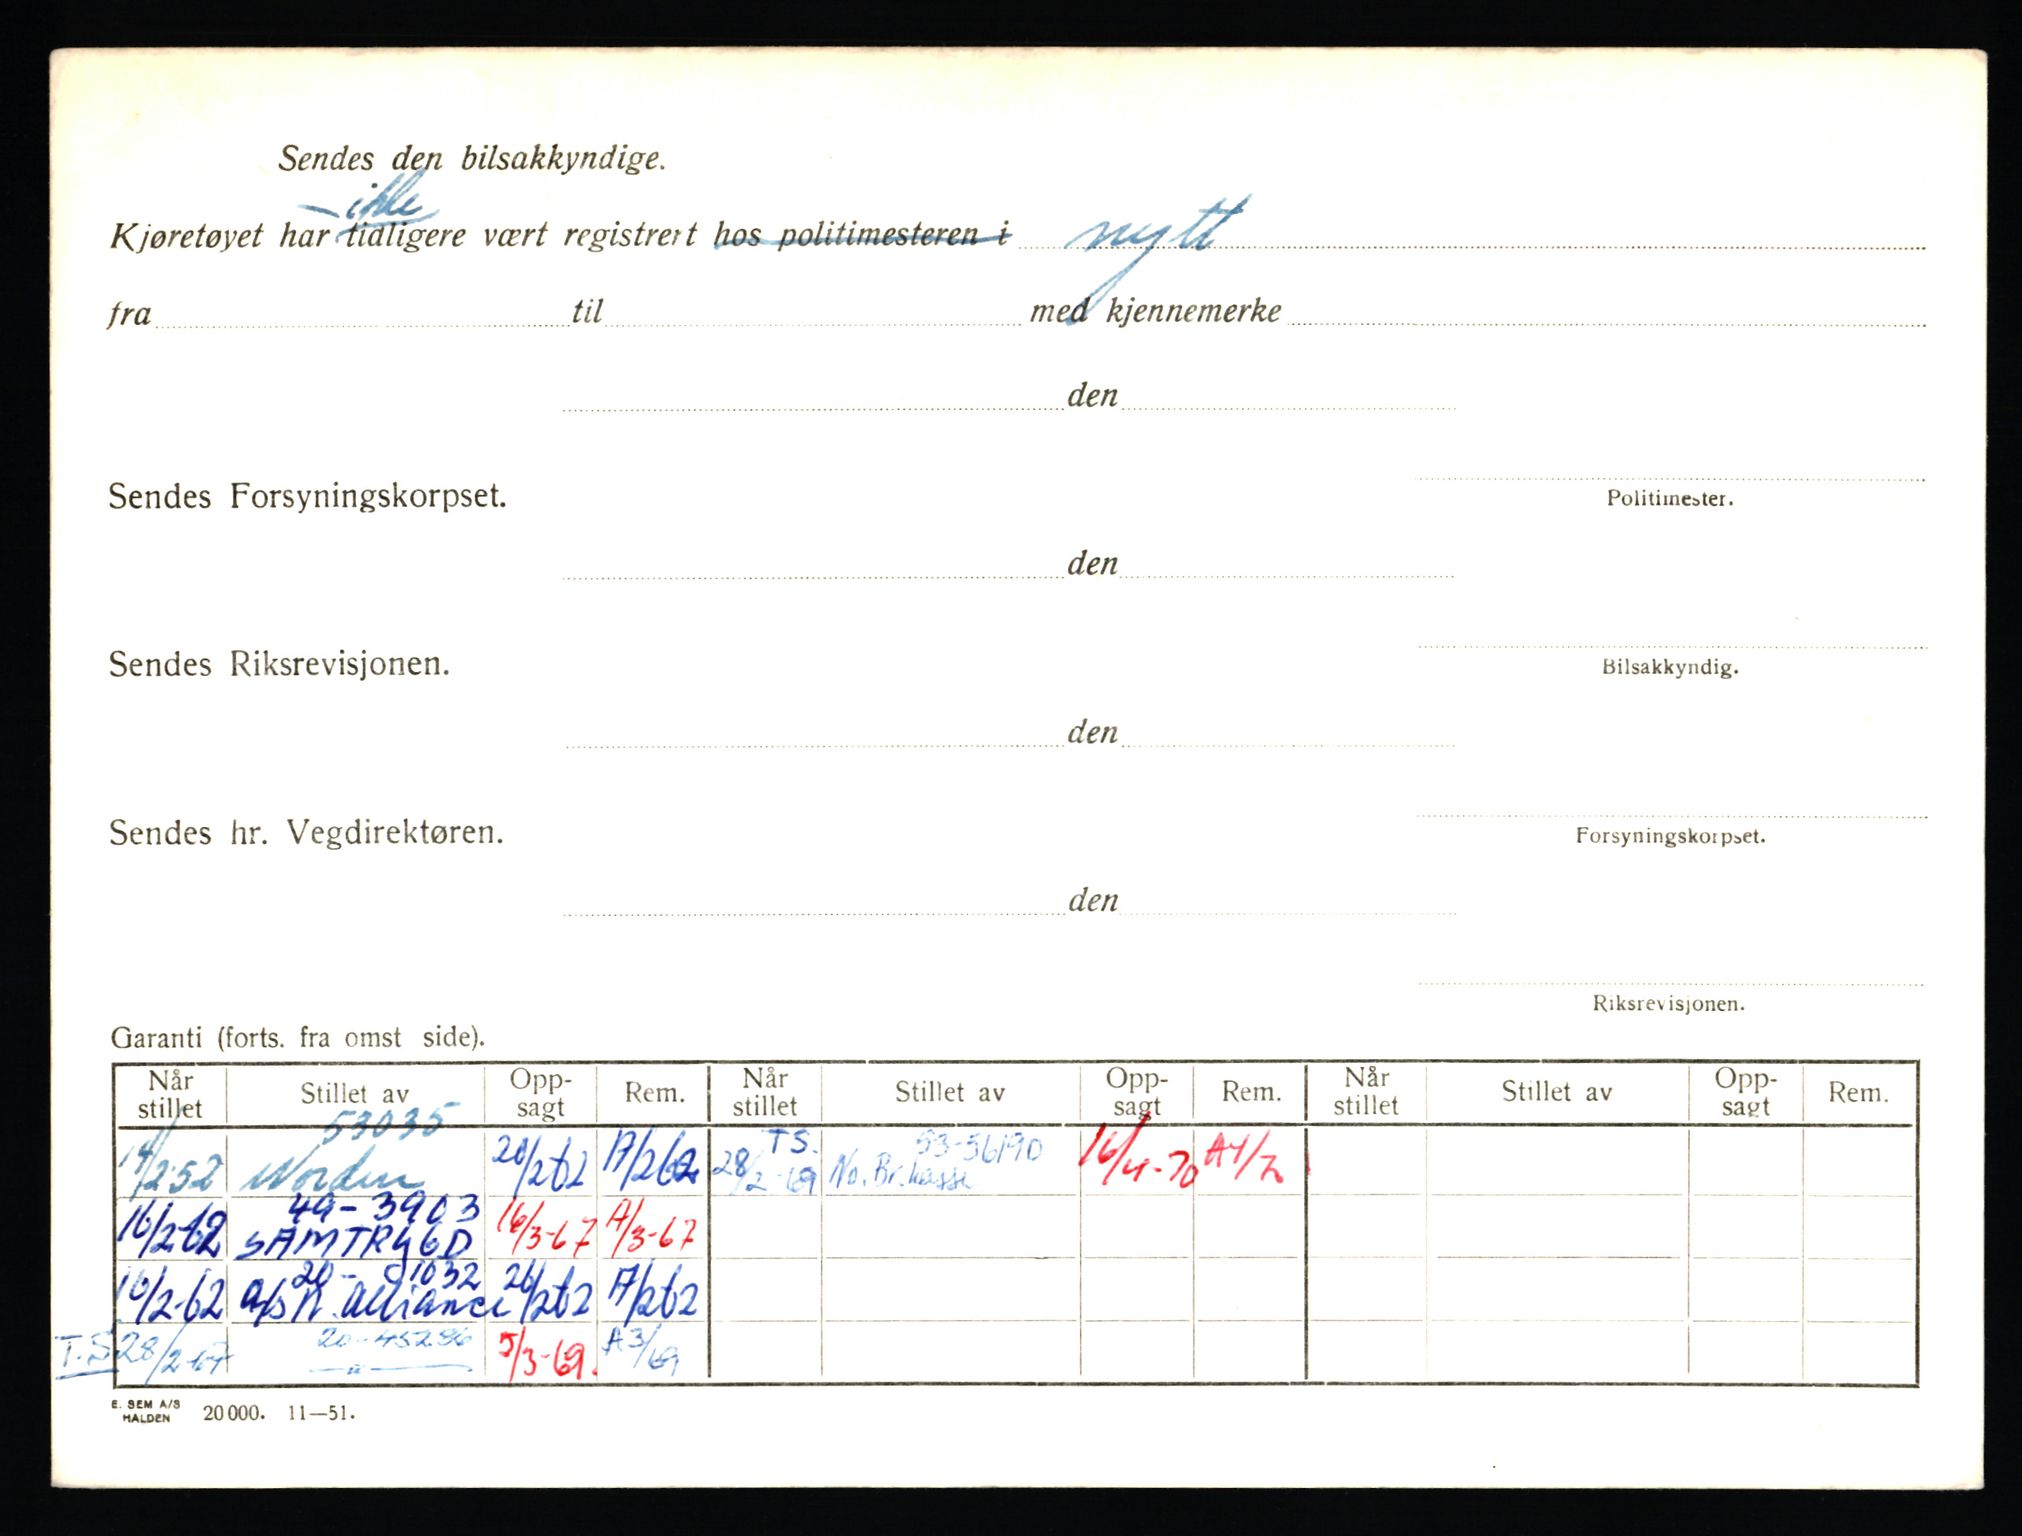 Sendes den bilsakkyndige.
ikke
Kjøretøyet har tidligere vært registrert hos politimesteren i nytt
fra til med kjennemerke
den
Sendes Forsyningskorpset.
Politimester.
den
Sendes Riksrevisjonen.
Bilsakkyndig.
den
Sendes hr. Vegdirektøren.
Forsyningskorpset.
den
Riksrevisjonen.
Garanti (forts. fra omst side).
Når stillet Stillet av Opp-sagt Rem. Når stillet Stillet av Opp-sagt Rem. Når stillet Stillet av Opp-sagt Rem.
53035
14/2 52 Norden 20/2 62 A/2 62 T.S. 28/2-69 53-56190 No. Br.kasse 16/4-70 A4/7
49-3903
16/2-62 SAMTRYGD 16/3-67 A/3-67
16/2-62 A/S N. Alliance 26/2 62 A/2 62
T.S 28/2-67 20-45286 — " — 5/3-69. A3/69
E. SEM A/S
HALDEN 20 000. 11—51.